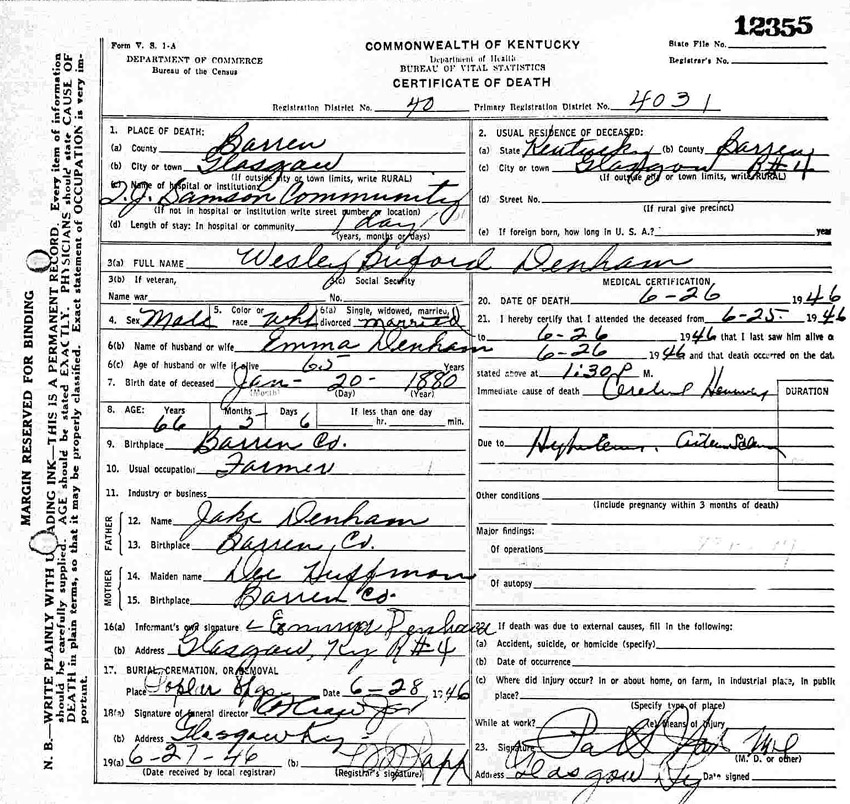 12355
Form V. S. 1-A
COMMONWEALTH OF KENTUCKY
State File No.
DEPARTMENT OF COMMERCE
Department of Health
Bureau of the Census
BUREAU OF VITAL STATISTICS
Registrar's No.
CERTIFICATE OF DEATH
Registration District No. 40 Primary Registration District No. 4031
1. PLACE OF DEATH:
(a) County Barren
(b) City or town Glasgow
(If outside city or town limits, write RURAL)
(c) Name of hospital or institution:
T. J. Samson Community
(If not in hospital or institution write street number or location)
(d) Length of stay: In hospital or community 1 day
(years, months or days)
2. USUAL RESIDENCE OF DECEASED:
(a) State Kentucky (b) County Barren
(c) City or town Glasgow R#4
(If outside city or town limits, write RURAL)
(d) Street No.
(If rural give precinct)
(e) If foreign born, how long in U. S. A.? year
3(a) FULL NAME Wesley Buford Denham
3(b) If veteran,
Name war
3(c) Social Security
No.
4. Sex Male 5. Color or race Wht 6(a) Single, widowed, married, divorced married
6(b) Name of husband or wife Emma Denham
6(c) Age of husband or wife if alive 65 Years
7. Birth date of deceased Jan- 20- 1880
(Month) (Day) (Year)
8. AGE: Years 66 Months 5 Days 6 If less than one day hr. min.
9. Birthplace Barren Co.
10. Usual occupation Farmer
11. Industry or business
FATHER
12. Name Jake Denham
13. Birthplace Barren, Co.
MOTHER
14. Maiden name Dee Huffman
15. Birthplace Barren Co.
16(a) Informant's own signature Emma Denham
(b) Address Glasgow, Ky R#4
17. BURIAL, CREMATION, OR REMOVAL
Place Poplar Spgs. Date 6-28 1946
18(a) Signature of funeral director
(b) Address Glasgow Ky-
19(a) 6-27-46 (b)
(Date received by local registrar) (Registrar's signature)
MEDICAL CERTIFICATION
20. DATE OF DEATH 6-26 1946
21. I hereby certify that I attended the deceased from 6-25 1946
to 6-26 1946 that I last saw him alive o
6-26 1946 and that death occurred on the dat
stated above at 1:30 P M.
Immediate cause of death Cerebral
DURATION
Due to
Other conditions
(Include pregnancy within 3 months of death)
Major findings:
Of operations
Of autopsy
22. If death was due to external causes, fill in the following:
(a) Accident, suicide, or homicide (specify)
(b) Date of occurrence
(c) Where did injury occur? In or about home, on farm, in industrial place, in public
place?
(Specify type of place)
While at work? (e) Means of Injury
23. Signature MD
(M. D. or other)
Address Glasgow Ky Date signed
MARGIN RESERVED FOR BINDING
N. B.—WRITE PLAINLY WITH UNFADING INK—THIS IS A PERMANENT RECORD. Every item of information
should be carefully supplied. AGE should be stated EXACTLY. PHYSICIANS should state CAUSE OF
DEATH in plain terms, so that it may be properly classified. Exact statement of OCCUPATION is very im-
portant.